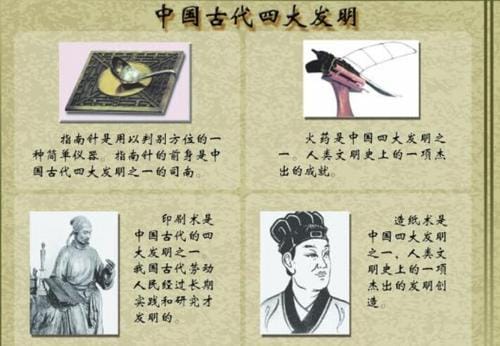 中国古代四大发明
指南针是用以判别方位的一
种简单仪器。指南针的前身是中
国古代四大发明之一的司南。
火药是中国四大发明之
一。人类文明史上的一项杰
出的成就。
印刷术是
中国古代的四
大发明之一，
我国古代劳动
人民经过长期
实践和研究才
发明的。
造纸术是
中国四大发明
之一、人类文
明史上的一项
杰出的发明创
造。